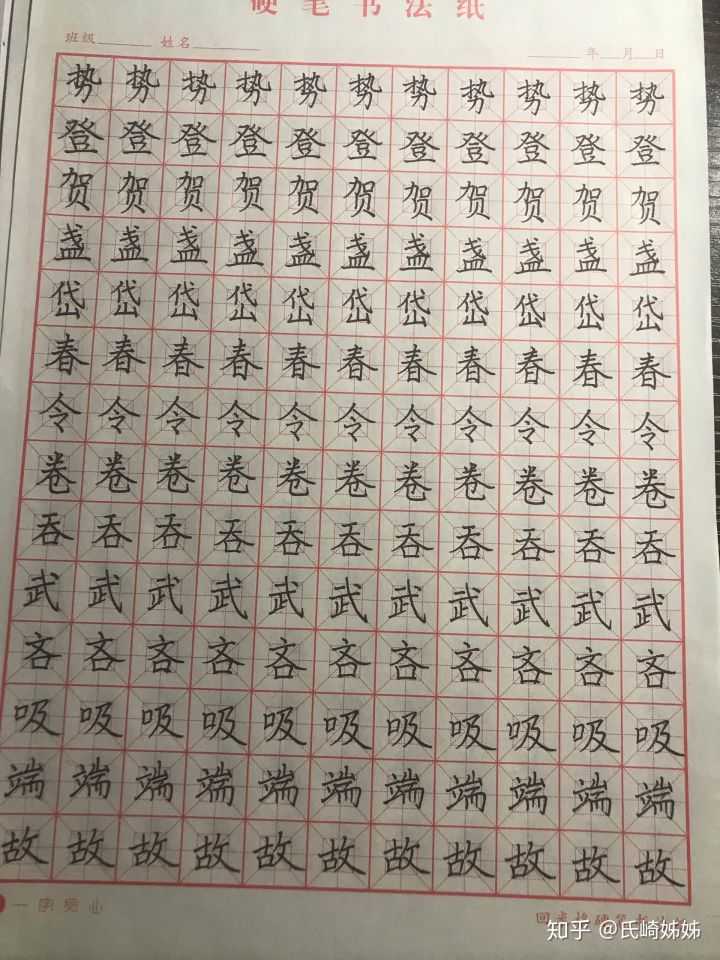 硬笔书法纸
班级 姓名 年 月 日
势势势势势势势势势势势
登登登登登登登登登登登
贺贺贺贺贺贺贺贺贺贺贺
盏盏盏盏盏盏盏盏盏盏盏
岱岱岱岱岱岱岱岱岱岱岱
春春春春春春春春春春春
令令令令令令令令令令令
卷卷卷卷卷卷卷卷卷卷卷
吞吞吞吞吞吞吞吞吞吞吞
武武武武武武武武武武武
吝吝吝吝吝吝吝吝吝吝吝
吸吸吸吸吸吸吸吸吸吸吸
端端端端端端端端端端端
故故故故故故故故故故故
知乎 @氏崎姊姊